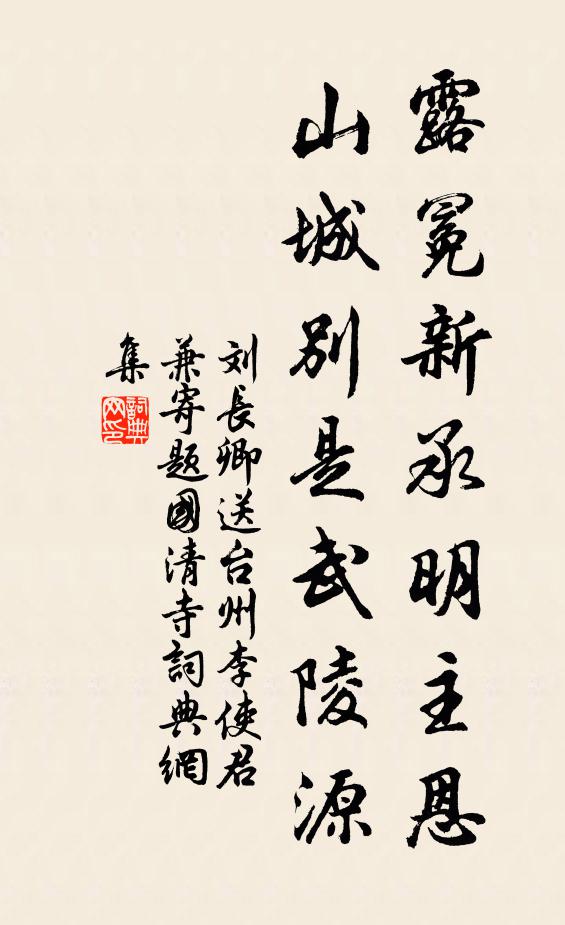 露冕新承明主恩
山城別是武陵源
刘長卿送台州李使君
兼寄題國清寺詞典網
集
詞典网印